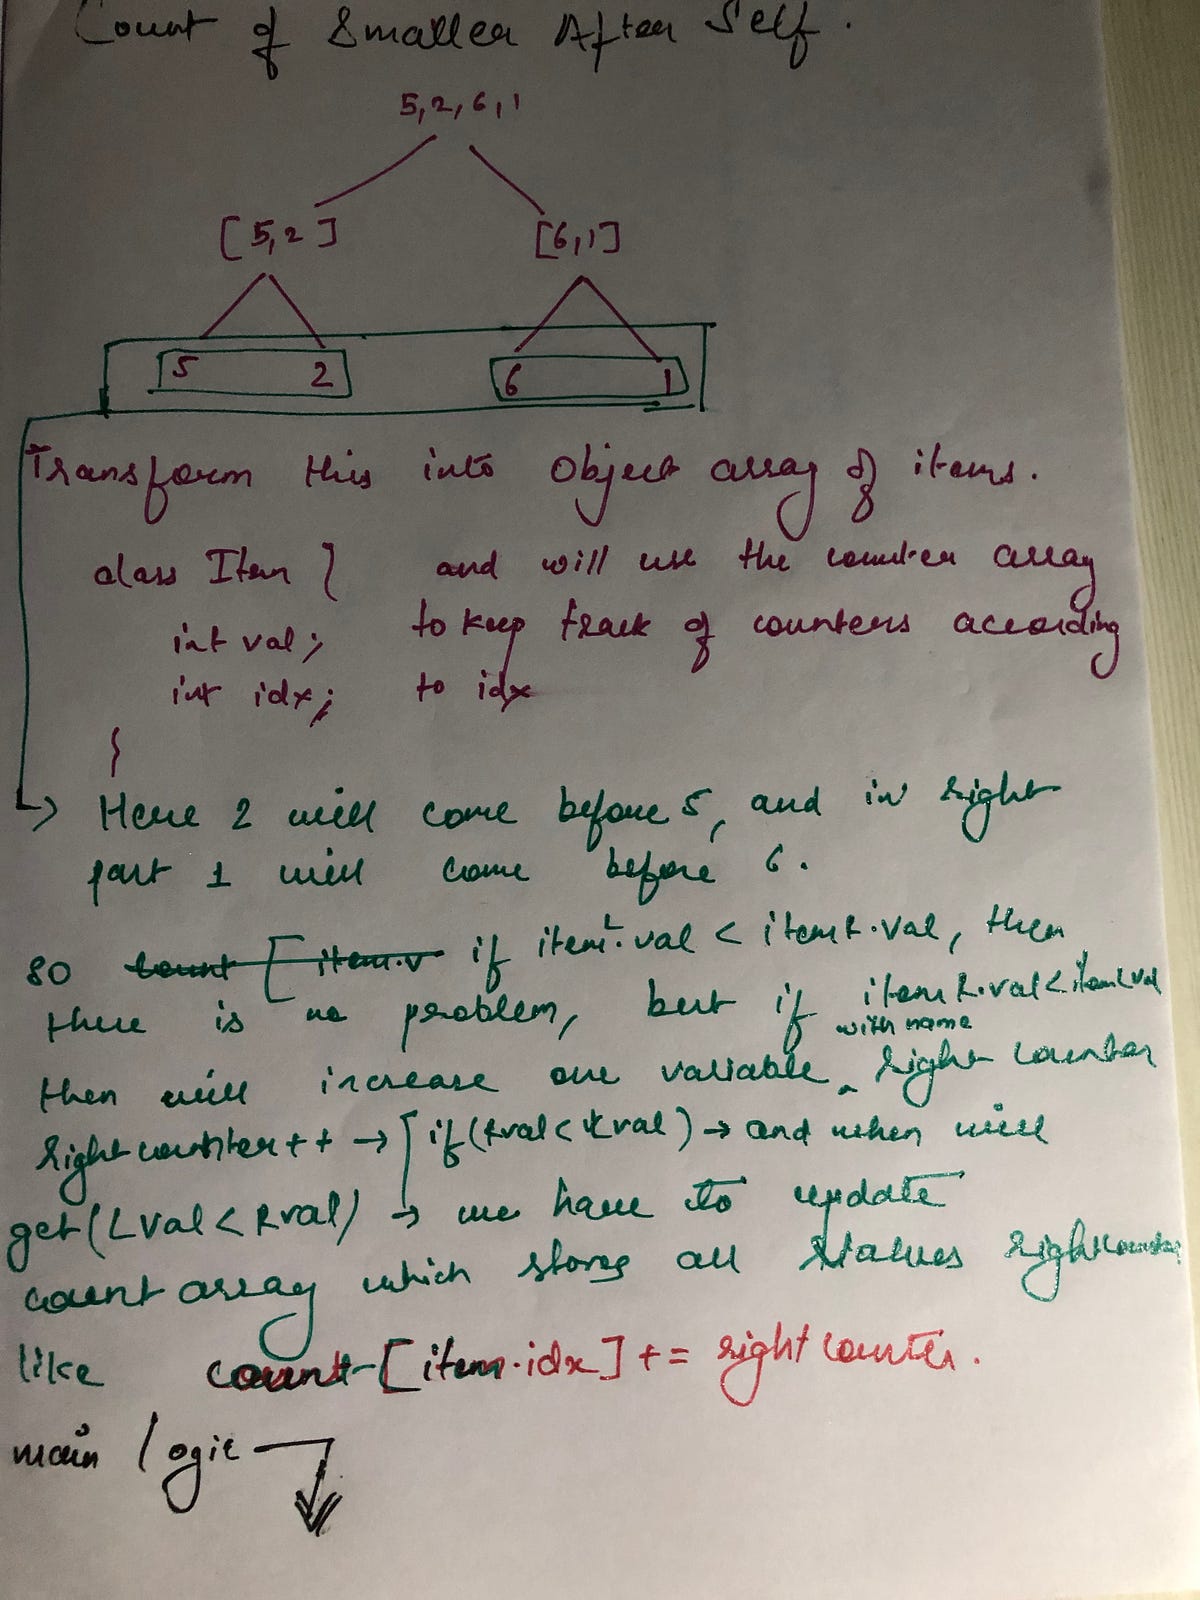 Count of Smaller After Self.
5,2,6,1
[5,2] [6,1]
5 2 6 1
Transform this into Object array of items.
class Item } and will use the counter array
int val; to keep track of counters according
int idx; to idx
}
Here 2 will come before 5, and in right
part 1 will come before 6.
so count [item.v if itemL.val < itemR.val, then
there is no problem, but if itemR.val<itemLval
with name
then will increase one variable ^ right counter
rightcounter++ → [if(Rval< val) → and when will
get(Lval<Rval) → we have to update
count array which stores all rightcounter
like count[item.idx] += rightcounter.
main logic